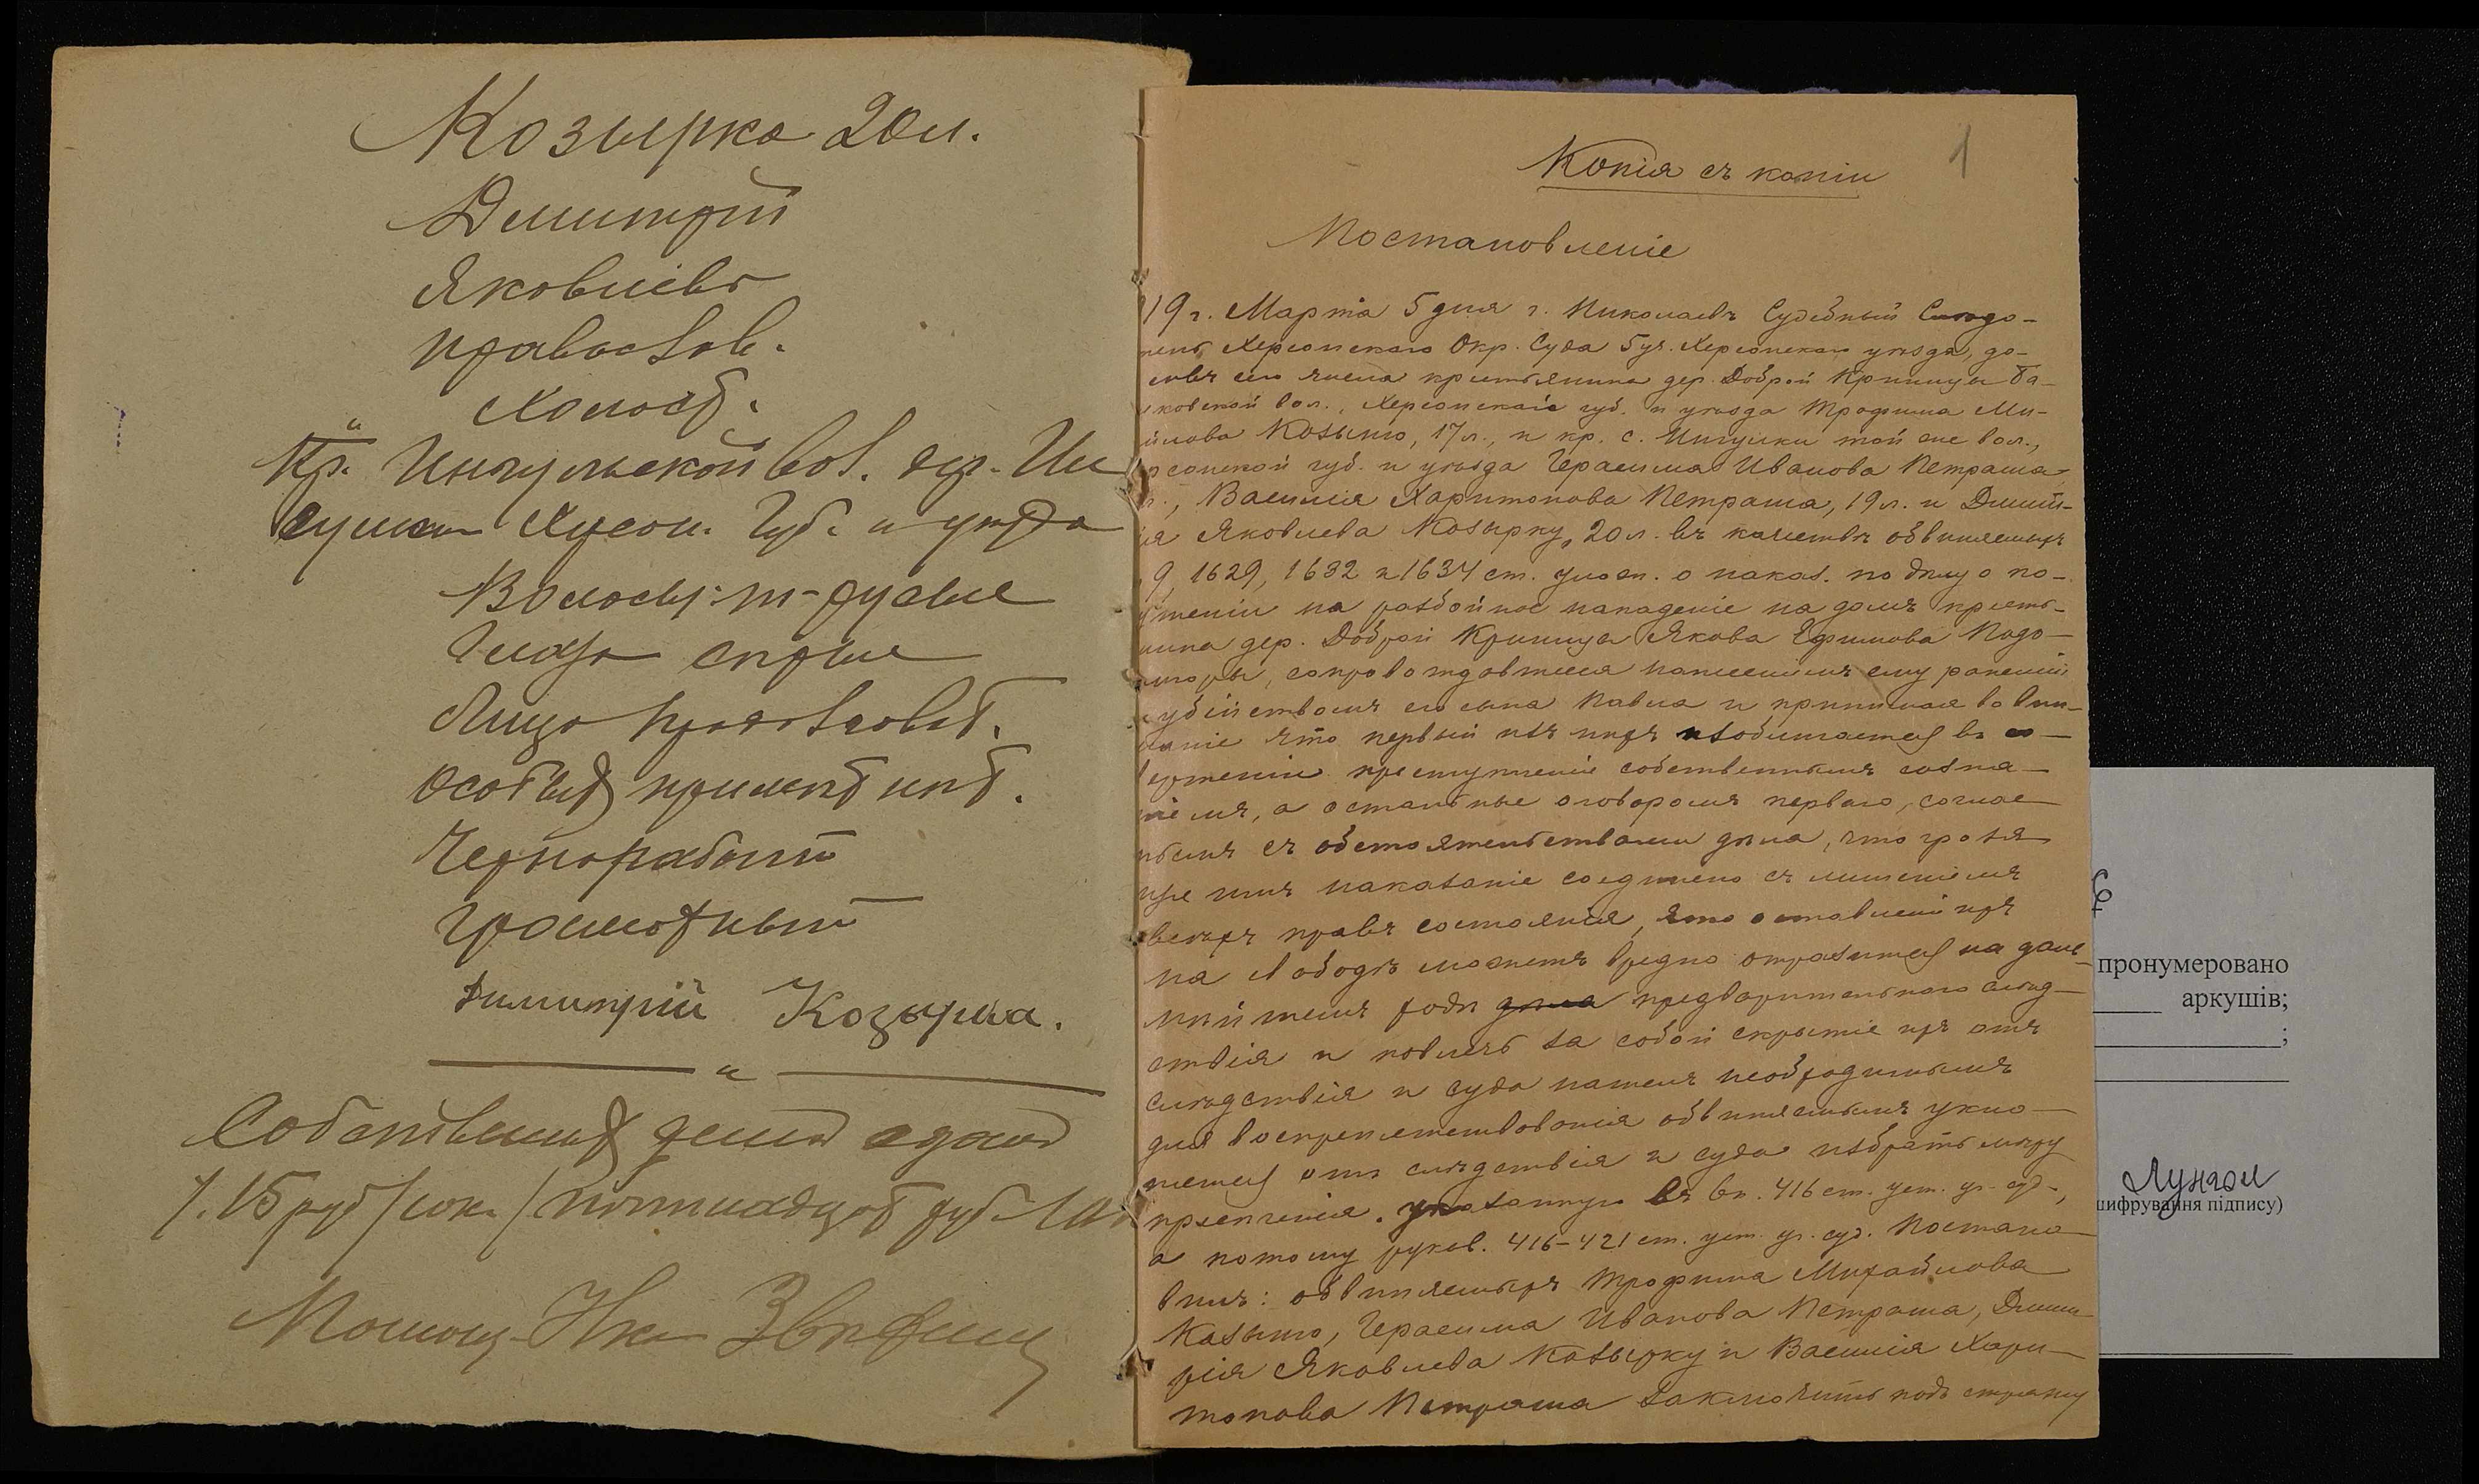 Козырка 20 л.
Димитрій
Яковлевъ
православ.
холост.
Кр. Ингульской вол. дер. Ин
гулки Херсон. Губ. и уѣзда
Волосы: т-русые
Глаза сѣрые
Лицо продолговат.
Особых примѣт нѣт.
Чернорабочій
грамотный
Димитрій Козырка.
"
Собственныхъ денегъ сдано
15 руб / пятнадцать руб
Помощ. Н-ка
1
Копія съ копіи
Постановленіе
19 г. Марта 5 дня г. Николаевъ Судебный Слѣдо-
Херсонскаго Окр. Суда 5 уч. Херсонскаго уѣзда, до-
сего числа крестьянина дер. Доброй Криницы Ба-
ковской вол., Херсонской губ. и уѣзда Трофима Ми-
йлова Козыго, 17 л., и кр. с. Ингулки той же вол.,
рсонской губ. и уѣзда Герасима Иванова Петраша
Василія Харитонова Петраша, 19 л. и Димит-
ія Яковлева Козырку, 20 л. въ качествѣ обвиняемыхъ
9, 1629, 1632 и 1634 ст. улож. о наказ. по дѣлу о по-
шеніи на разбойное нападеніе на домъ кресть-
нина дер. Доброй Криницы Якова Ефимова Подо-
сопровождавшееся нанесеніемъ ему раненій
убійствомъ его сына Павла и принимая во вни-
маніе что первый изъ нихъ изобличается въ со-
вершеніи преступленія собственнымъ созна-
ніемъ, а остальные оговоромъ перваго, соглас-
нымъ съ обстоятельствами дѣла, что грозя-
щее имъ наказаніе соединено съ лишеніемъ
всѣхъ правъ состоянія, что оставленіе ихъ
на свободѣ можетъ вредно отразиться на даль-
нѣйшемъ ходѣ дѣла предварительнаго слѣд-
ствія и повлечь за собой скрытіе ихъ отъ
слѣдствія и суда нашелъ необходимымъ
для воспрепятствованія обвиняемымъ укло-
няться отъ слѣдствія и суда избрать мѣру
пресѣченія, указанную въ 6 п. 416 ст. уст. уг. суд.,
а потому руков. 416-421 ст. уст. уг. суд. Постано-
вилъ: обвиняемыхъ Трофима Михайлова
Козыго, Герасима Иванова Петраша, Дими-
трія Яковлева Козырку и Василія Хари-
тонова Петраша заключить подъ стражу
пронумеровано
аркушів;
;
Лунгол
шифрування підпису)